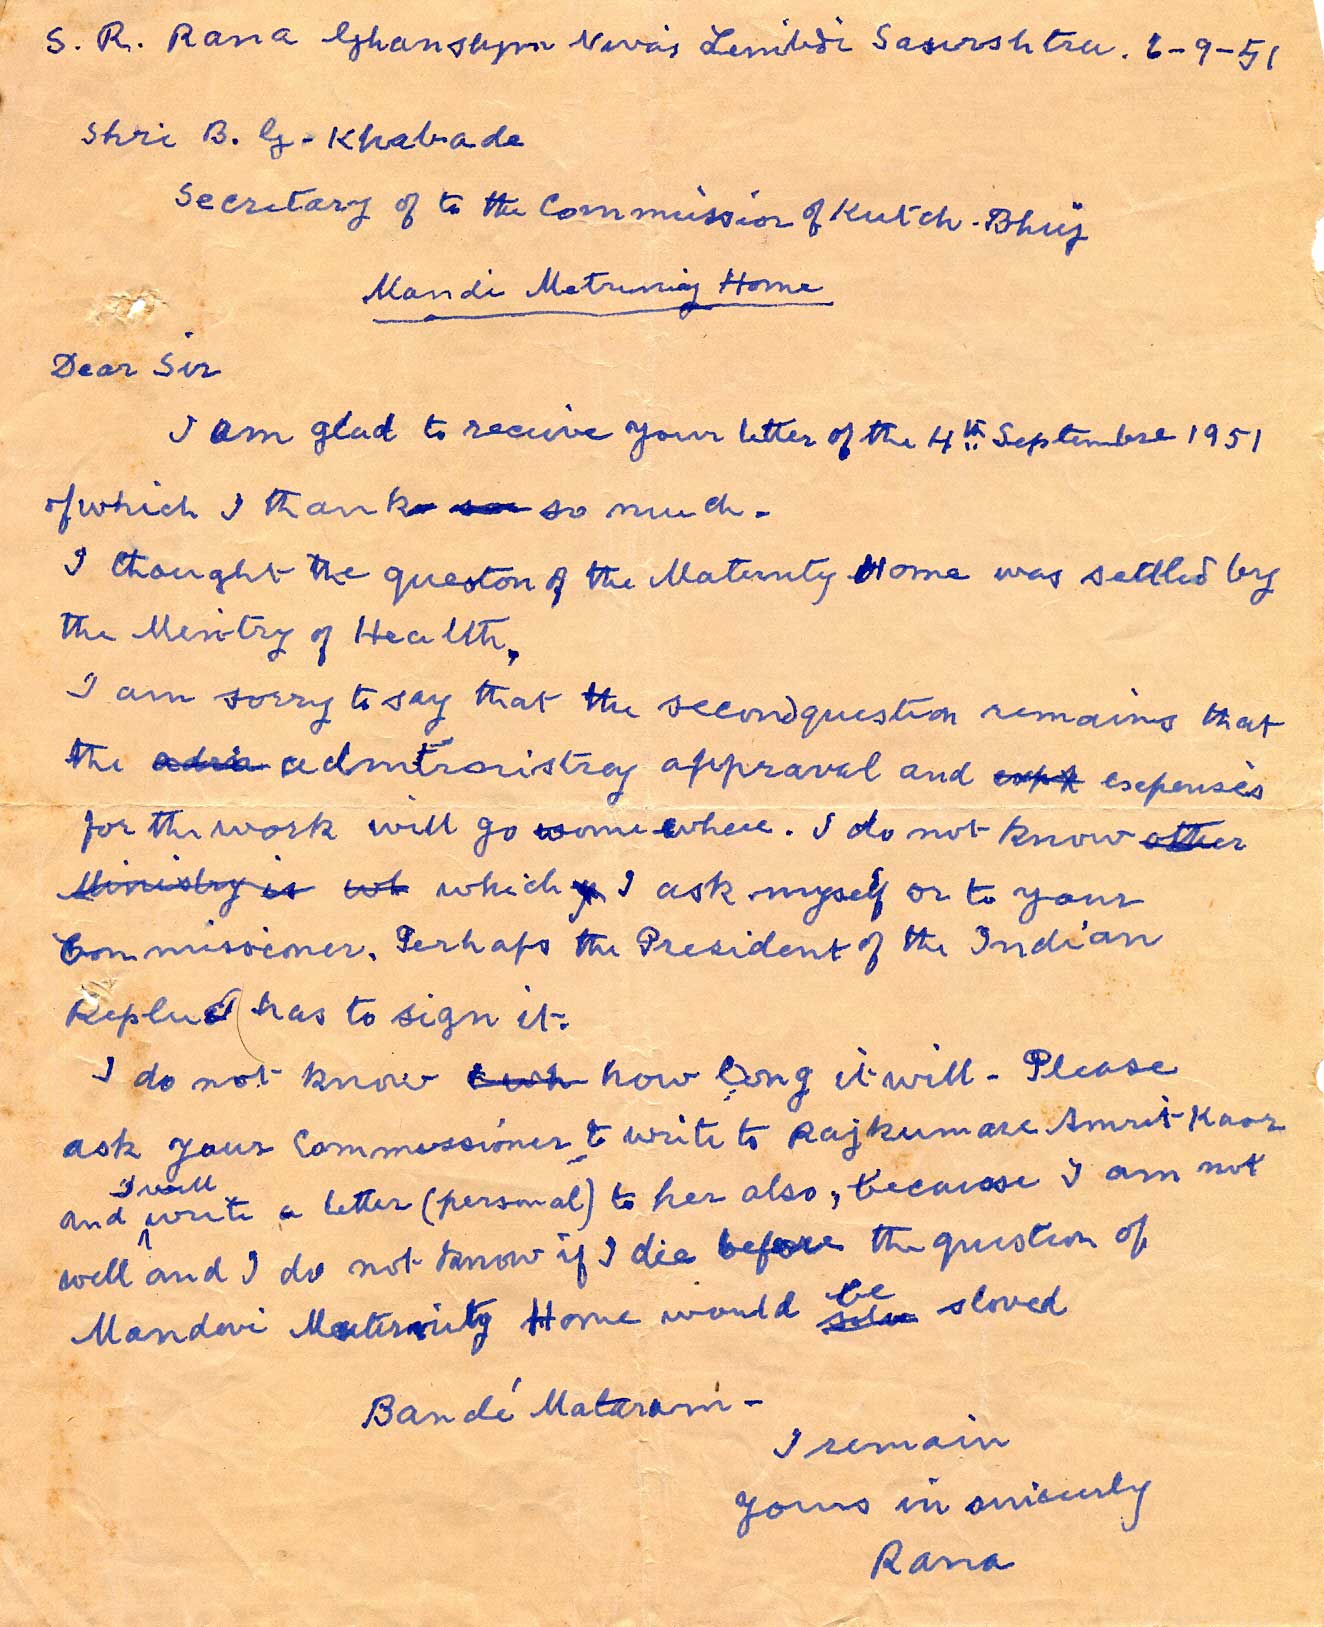 S. R. Rana Ghanshyam Nivas Limbdi Saurshtra. 6-9-51
Shri B. G. Khabade
Secretary of to the Commission of Kutch. Bhuj
Mandi Metruniy Home
Dear Sir
I am glad to receive your letter of the 4th Septembre 1951
of which I thank so much.
I thought the queston of the Maternity Home was settled by
the Minitry of Health,
I am sorry to say that the second question remains that
the appraval and expenses
for the work will go some where. I do not know other
Ministry is wh which I ask myself or to your
Commissioner. Perhaps the President of the Indian
has to sign it.
I do not know how long it will - Please
ask your Commissioner to write to Rajkumare Amrit Kaor
and I will write a letter (personal) to her also, because I am not
well and I do not know if I die before the question of
Mandovi Maternity Home would be sloved
Bandé Mataram -
I remain
Yours in sincerly
Rana